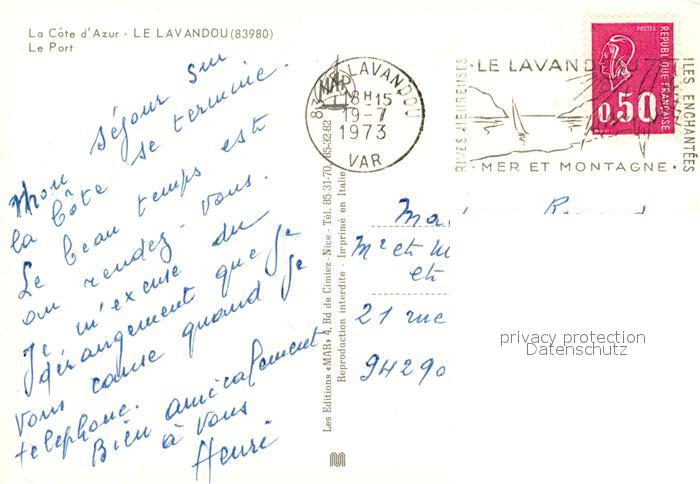 La Côte d'Azur - LE LAVANDOU (83980)
Le Port
Mon séjour sur
la Côte se termine.
Le beau temps est
au rendez-vous.
Je m'excuse du
dérangement que je
vous cause quand je
telephone.
Bien amicalement
à vous
Henri
LAVANDOU
18H-15
19-7
1973
VAR
RIVES HEUREUSES
LE LAVANDOU
ILES ENCHANTÉES
MER ET MONTAGNE
POSTES
REPUBLIQUE FRANÇAISE
0,50
Les Editions «MAR» 4, Bd de Cimiez - Nice - Tel. 85-31-70, 85-32-82
MAR
Reproduction interdite - Imprimé en Italie
Mr et M
et
21 rue
94290
privacy protection
Datenschutz